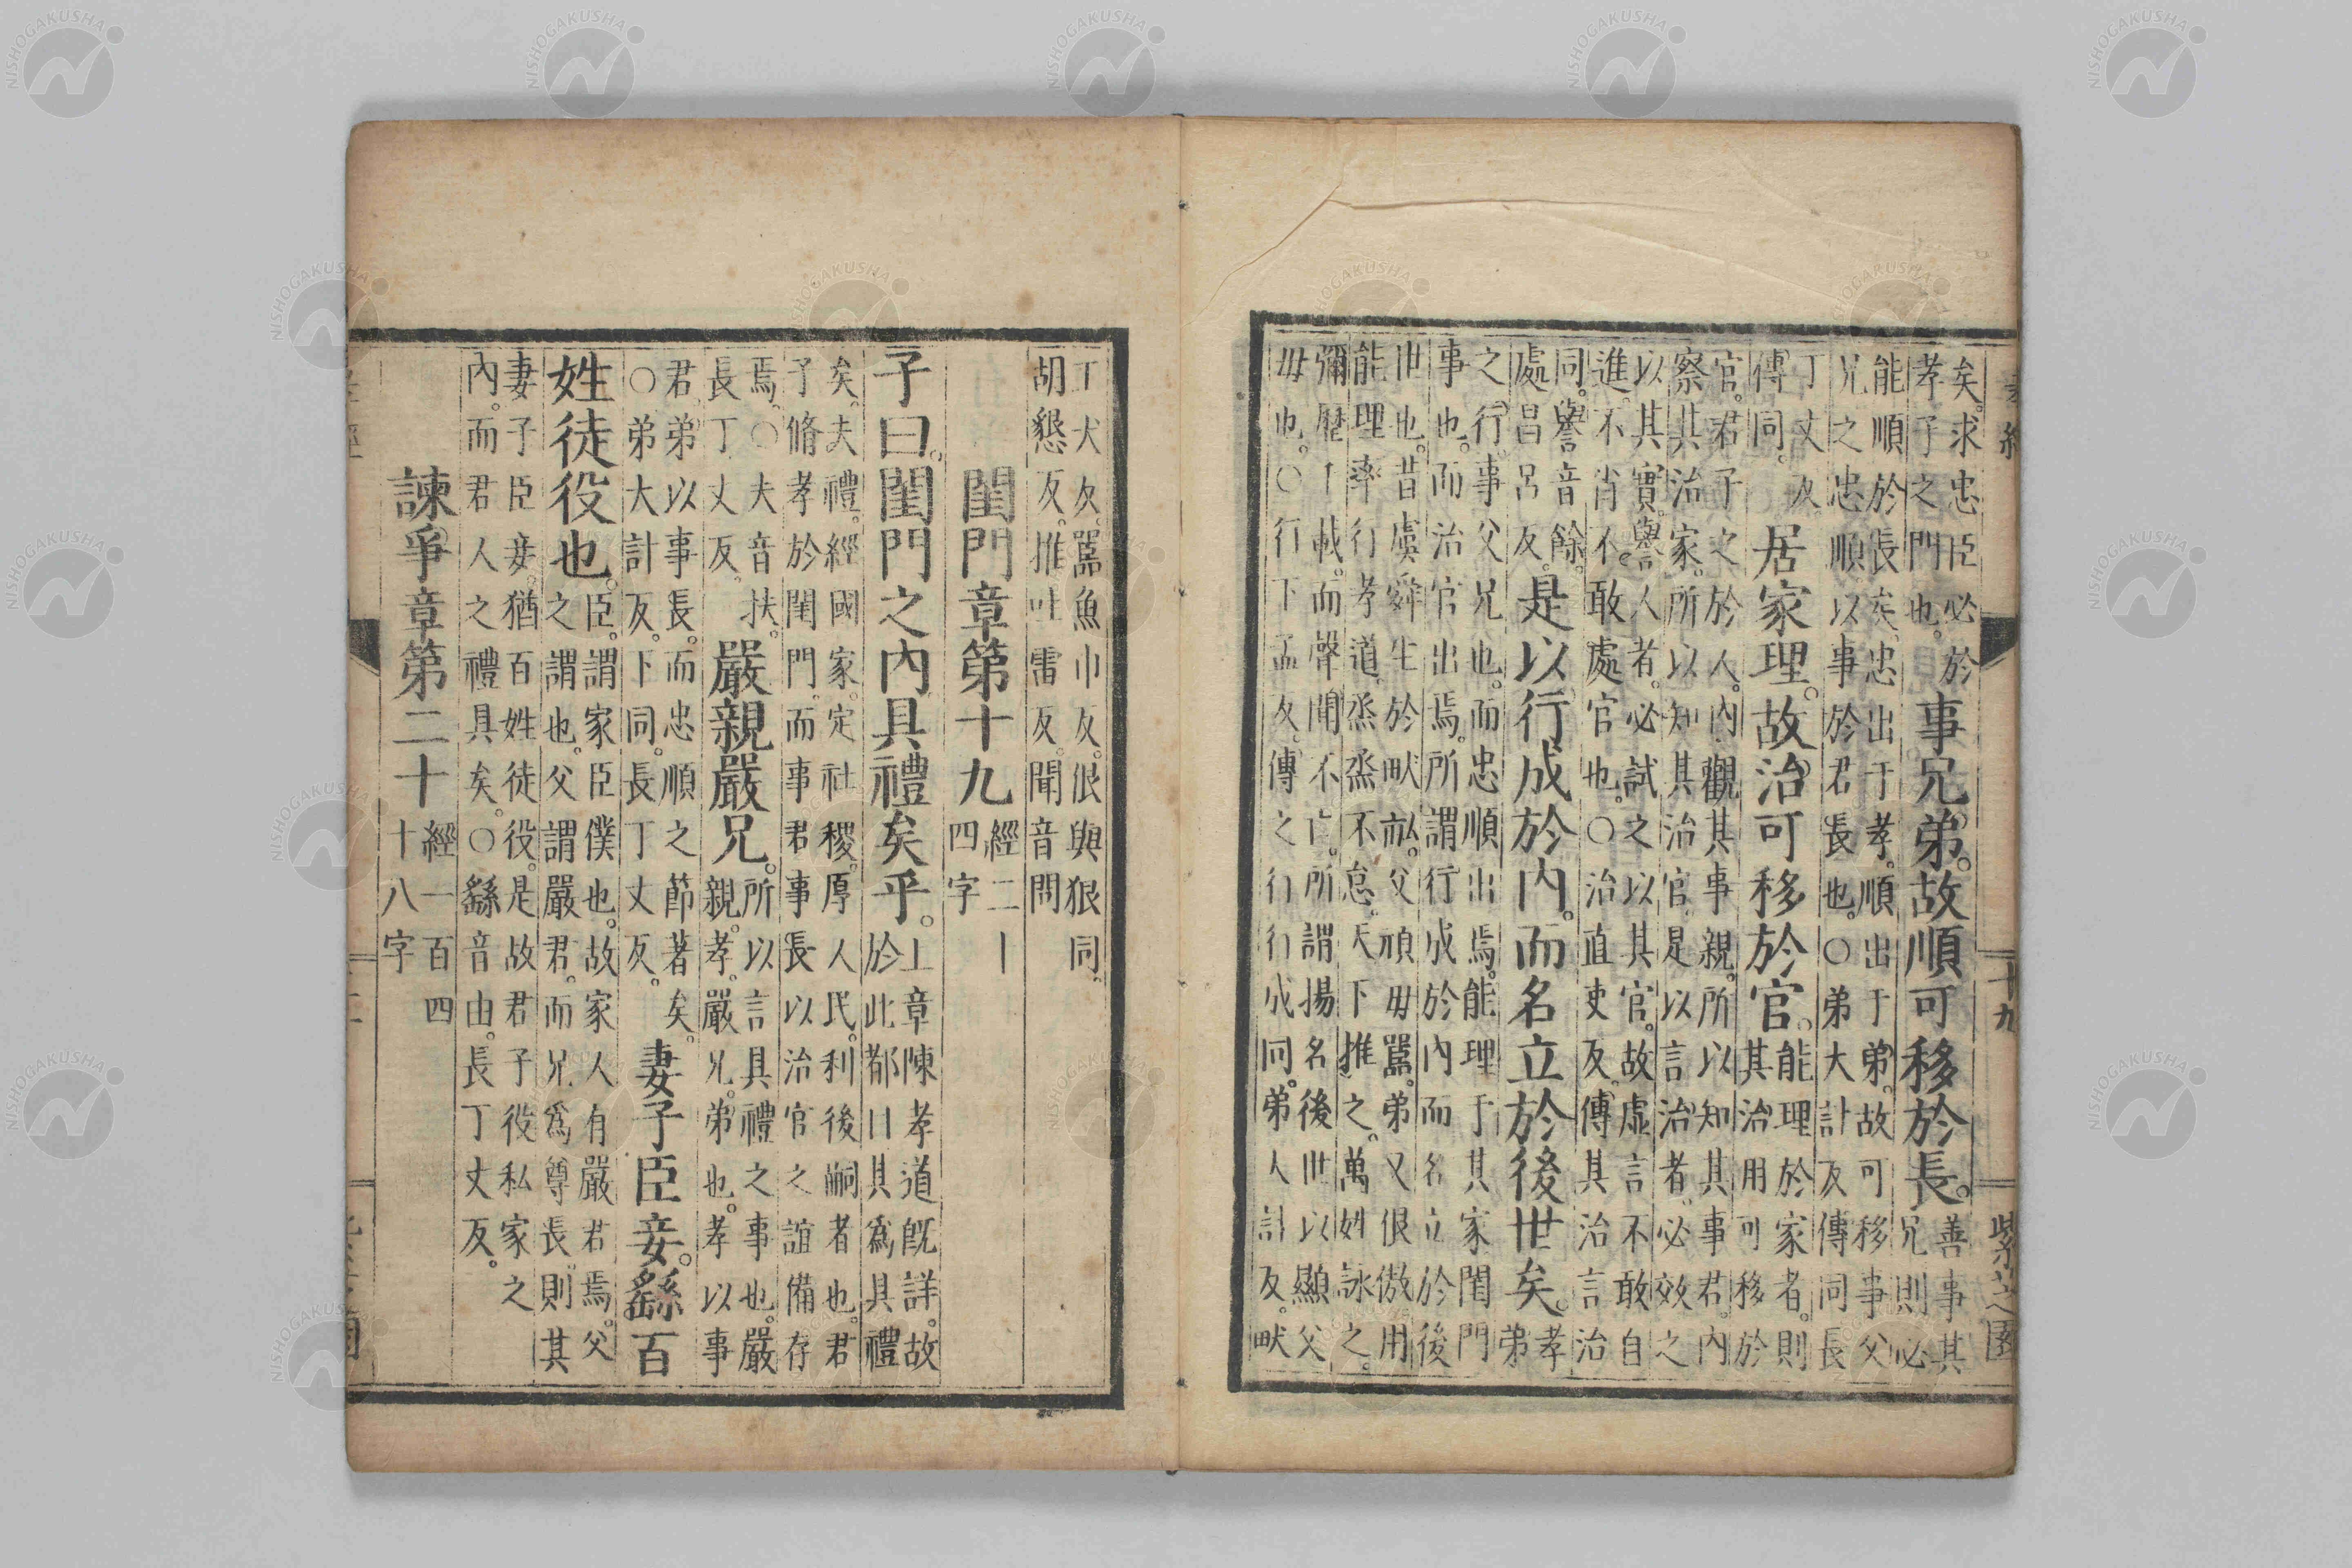 孝經 十九 紫芝園
矣。求忠臣必於
孝子之門也。
事兄弟。故順可移於長。
善事其
兄則必
能順於長矣。忠出于孝。順出于弟。故可移事父
兄之忠順。以事於君長也。○弟大計反傳同長
丁丈反
傳同。
居家理。故治可移於官。
能理於家者。則
其治用可移於
官。君子之於人。內觀其事親。所以知其事君。內
察其治家。所以知其治官。是以言治者。必效之
以其實。譽人者。必試之以其官。故虛言不敢自
進。不肖不敢處官也。○治直吏反。傳其治言治
同。譽音餘。
處昌呂反。
是以行成於內。而名立於後世矣。
孝
弟
之行。事父兄也。而忠順出焉。能理于其家閨門
事也。而治官出焉。所謂行成於內而名立於後
世也。昔虞舜生於畎畝。父頑毋嚚。弟又佷傲。用
能理率行孝道。烝烝不怠。天下推之。萬姓詠之。
彌歷千載。而聲聞不亡。所謂揚名後世以顯父
毋也。○行下孟反。傳之行行成同。弟人計反。畎
丁犬反。嚚魚巾反。佷與狠同。
胡懇反。推吐雷反。聞音問
閨門章第十九
經二十
四字
子曰。閨門之內具禮矣乎。
上章陳孝道旣詳。故
於此都曰其爲具禮
矣。夫禮。經國家。定社稷。厚人民。利後嗣者也。君
子脩孝於閨門。而事君事長以治官之誼備存
焉。○夫音扶。
長丁丈反。
嚴親嚴兄。
所以言具禮之事也。嚴
親。孝。嚴兄。弟也。孝以事
君。弟以事長。而忠順之節著矣。
○弟大計反。下同。長丁丈反。
妻子臣妾。繇百
姓徒役也。
臣。謂家臣僕也。故家人有嚴君焉。父
之謂也。父謂嚴君。而兄爲尊長。則其
妻子臣妾。猶百姓徒役。是故君子役私家之
內。而君人之禮具矣。○繇音由。長丁丈反。
諫爭章第二十
經一百四
十八字